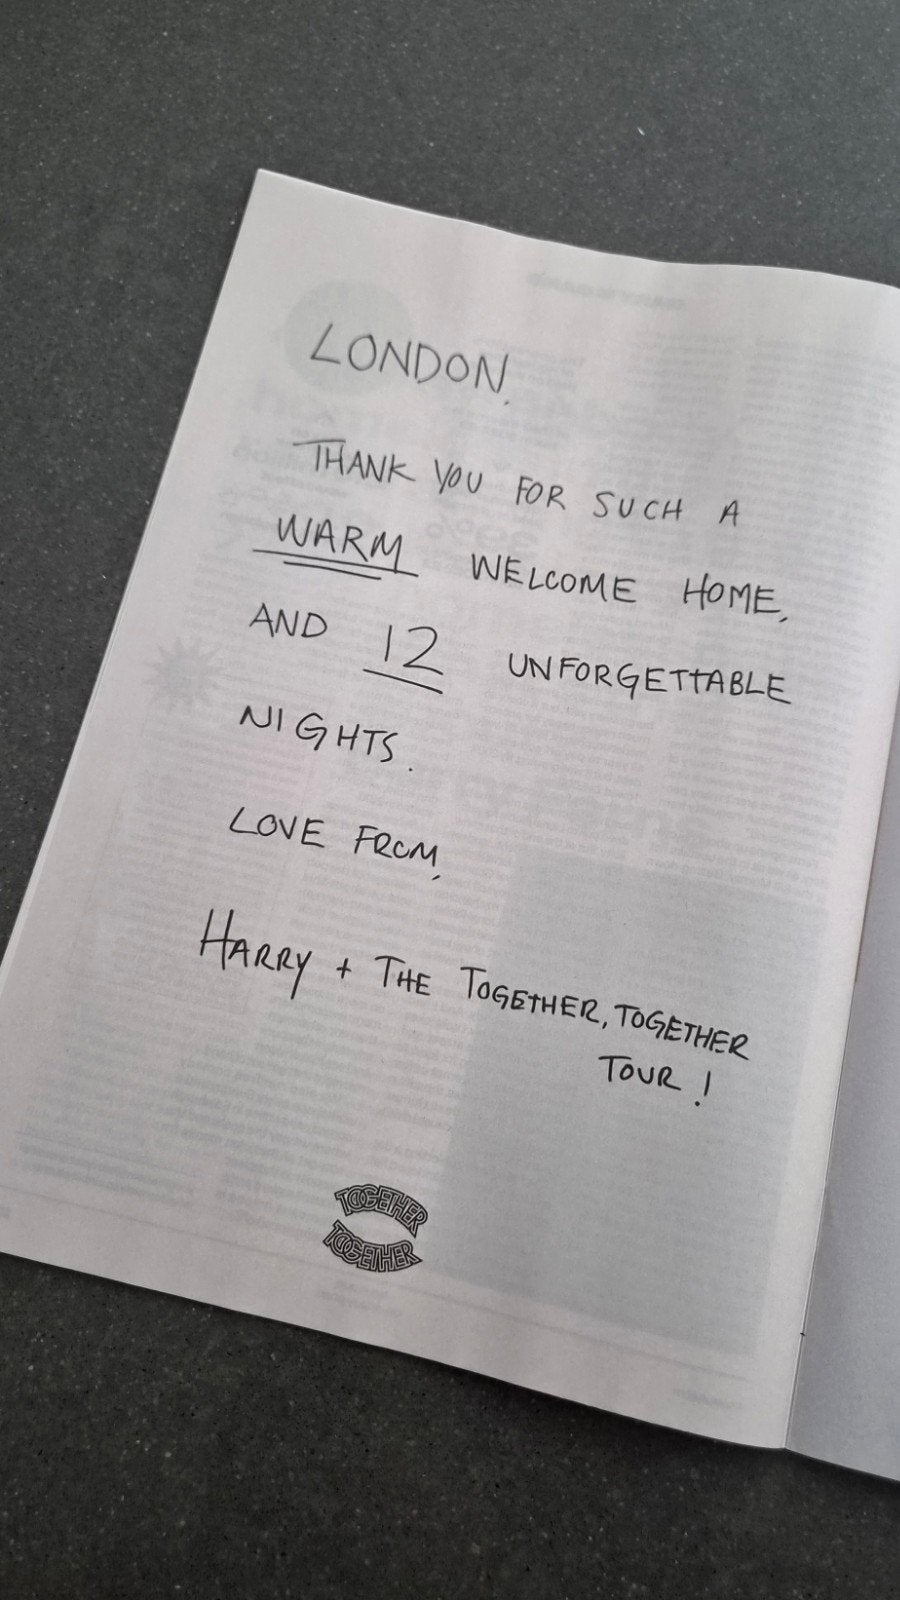 LONDON,
THANK YOU FOR SUCH A
WARM WELCOME HOME,
AND 12 UNFORGETTABLE
NIGHTS.
LOVE FROM,
HARRY + THE TOGETHER, TOGETHER
TOUR!
TOGETHER
TOGETHER